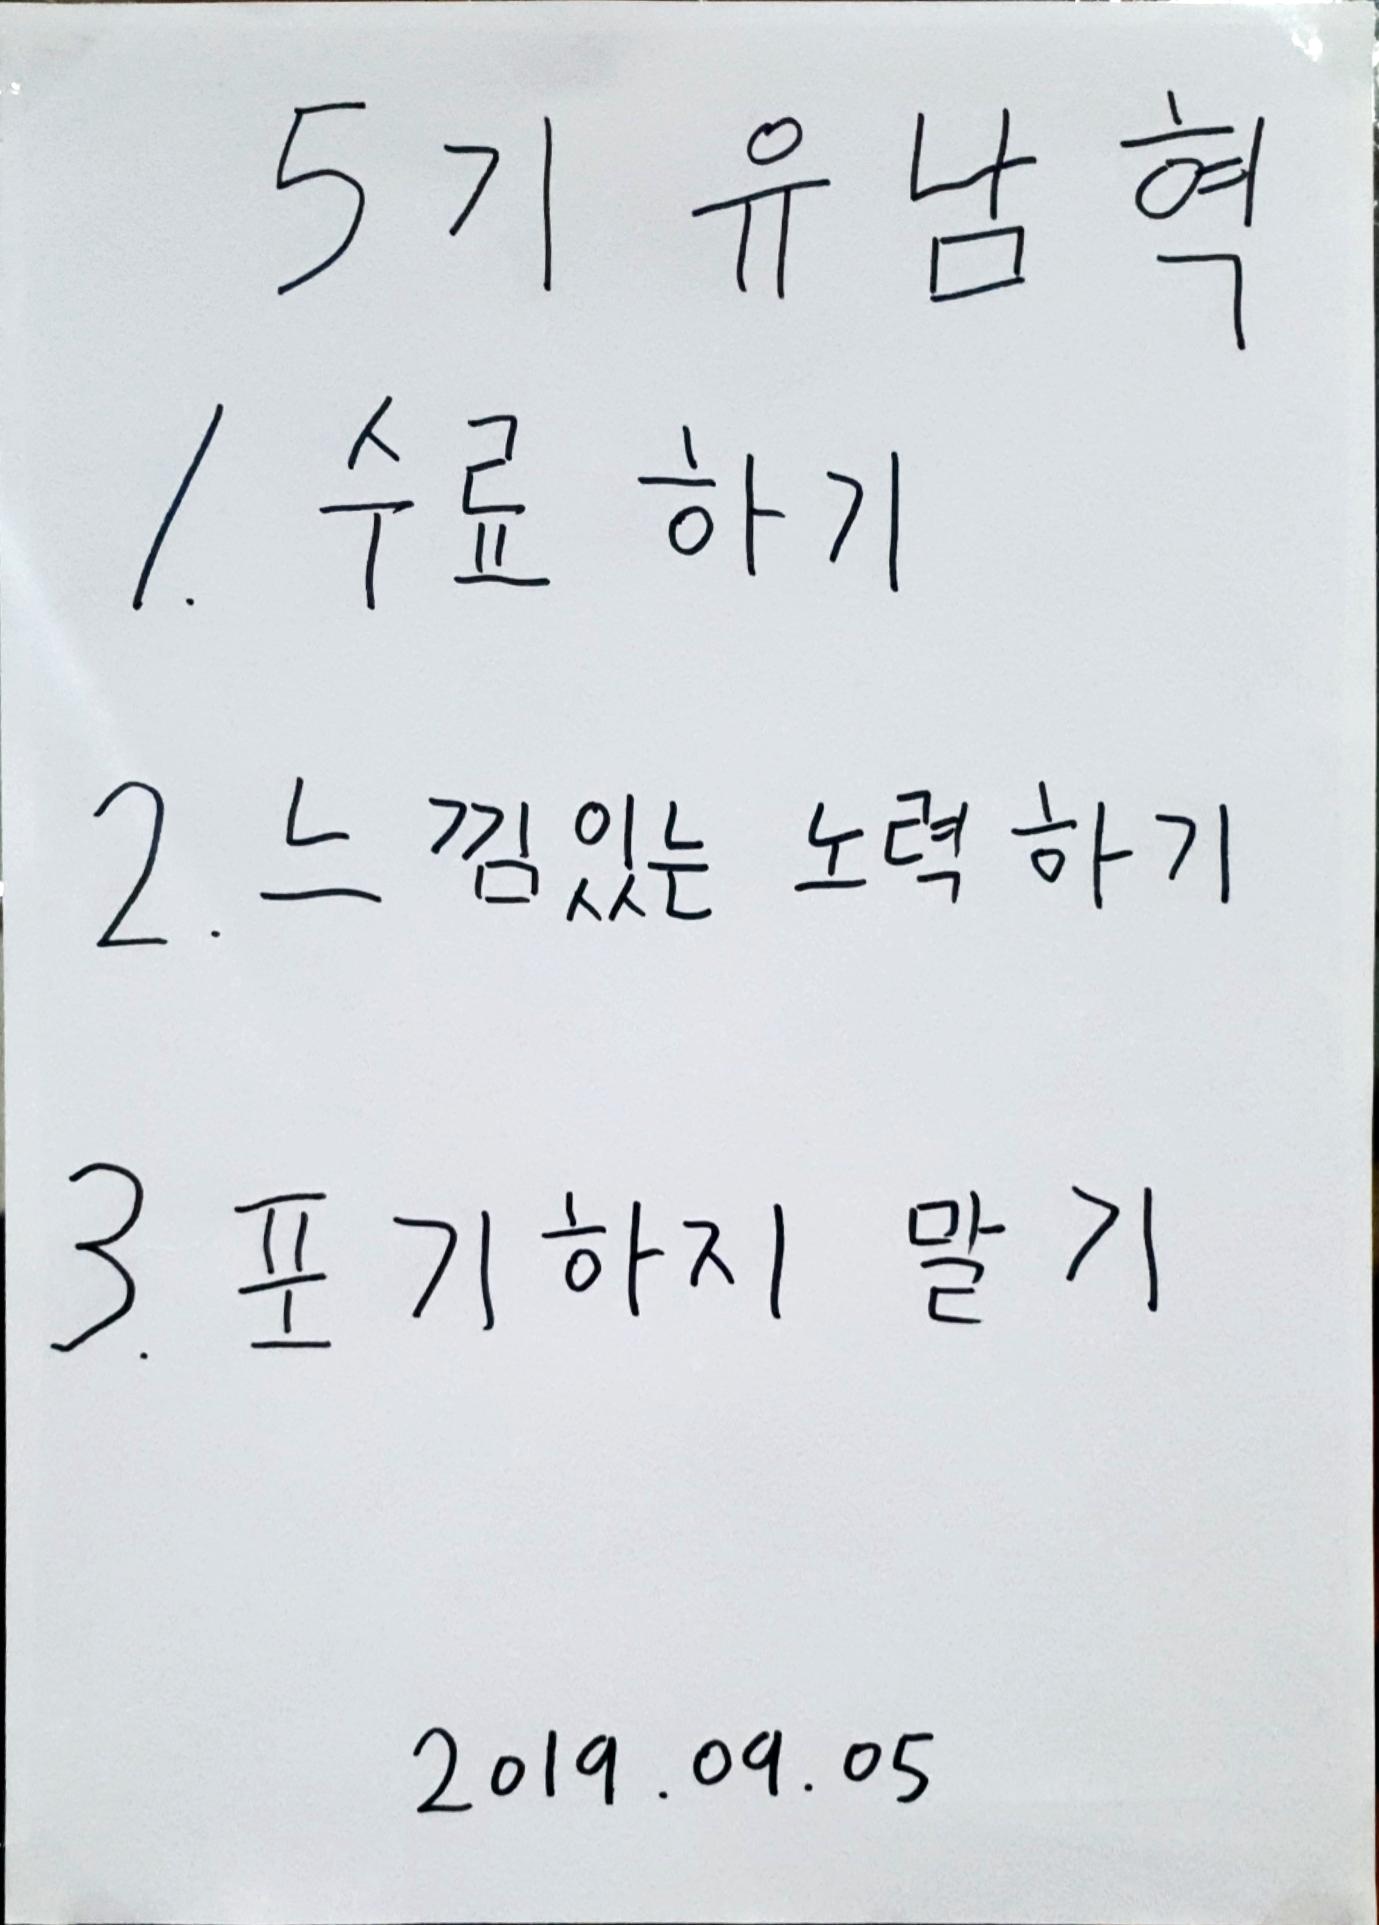 5기 유남혁
1. 수료 하기
2. 느낌있는 노력하기
3. 포기하지 말기
2019.09.05